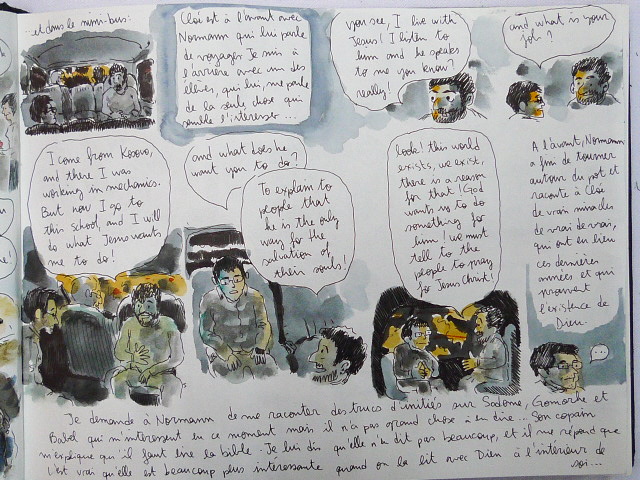 ...et dans le mini-bus:
Cloé est à l'avant avec
Normann qui lui parle
de voyages. Je suis à
l'arrière avec un des
élèves, qui, lui, me parle
de la seule chose qui
semble l'intéresser...
you see, I live with
Jesus! I listen to
him and he speaks
to me you know?
really!
and what is your
job?
I come from Kosovo,
and there I was
working in mechanics.
But now I go to
this school, and I will
do what Jesus wants
me to do!
and what does he
want you to do?
To explain to
people that
he is the only
way for the
salvation of
their souls!
look! this world
exists, we exist,
there is a reason
for that! God
wants us to do
something for
him! we must
tell to the
people to pray
for Jesus Christ!
A l'avant, Normann
a fini de tourner
autour du pot et
raconte à Cloé
de vrais miracles
de vrai de vrai,
qui ont eu lieu
ces dernières
années et qui
prouvent
l'existence de
Dieu.
...
Je demande à Normann de me raconter des trucs d'initiés sur Sodome, Gomorhe et
Babel qui m'intéressent en ce moment mais il n'a pas grand chose à en dire... Son copain
m'explique qu'il faut lire la bible. Je lui dis qu'elle n'en dit pas beaucoup, et il me répond que
c'est vrai qu'elle est beaucoup plus intéressante quand on la lit avec Dieu à l'intérieur de
soi...